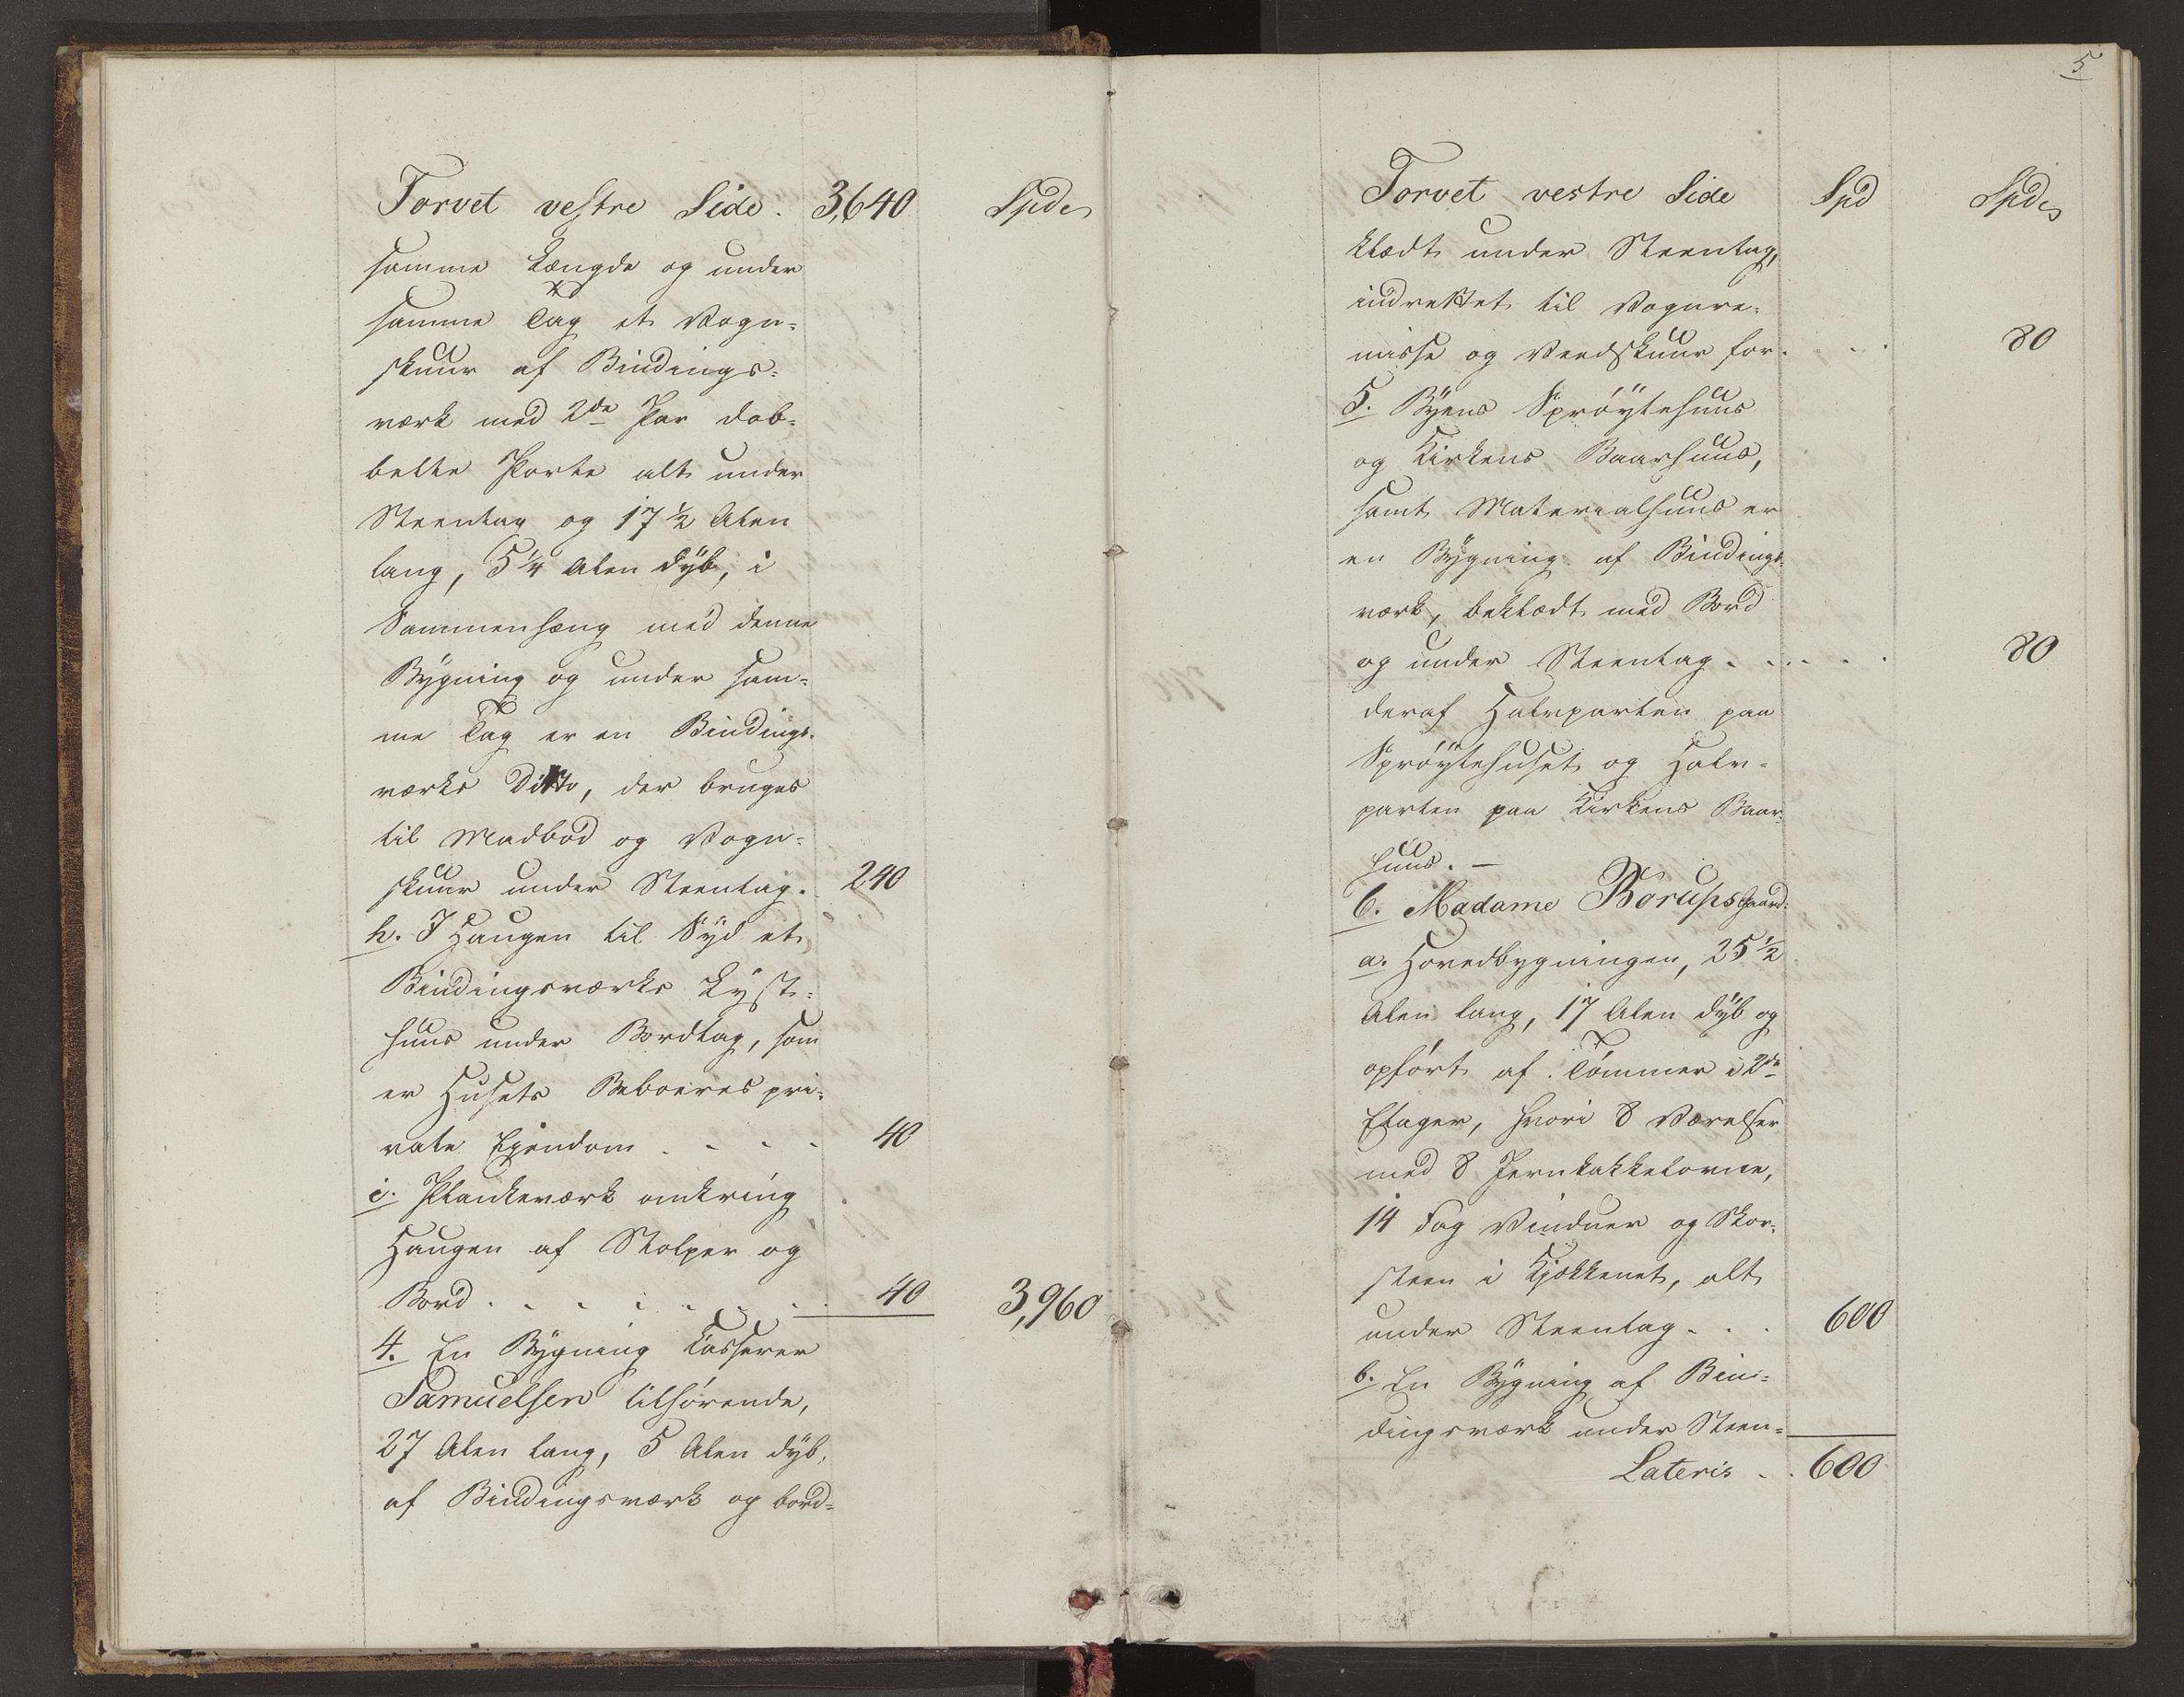 Torvet vestre Side. 3,640 Spd.
samme Længde og under
samme Tag et Vogn-
skuur af Bindings-
værk med 2de Par dob-
belte Porte alt under
Steentag og 17 1/2 Alen
lang, 5 1/4 Alen dÿb, i
Sammenhæng med denne
Bÿgning og under sam-
me Tag er en Bindings-
værks Ditto, der bruges
til Madbod og Vogn-
skuur under Steentag. 240
h. I Haugen til Sÿd et
Bindingsværks Lÿst-
huus under Bordtag, som
er Husets Beboeres pri-
vate Ejendom . - - - 40
i. Plankeværk omkring
Haugen af Stolper og
Bord . . . . . . . 40 3,960
4. En Bÿgning Casserer
Samuelsen tilhørende,
27 Alen lang, 5 Alen dÿb,
af Bindingsværk og bord-
5
Torvet vestre Side Spd Spd.
klædt under Steentag,
indrettet til Vognre-
misse og Veedskuur for. . . . 80
5. Bÿens Sprøÿtehuus
og Kirkens Baarhuus,
samt Materialhuus er
en Bÿgning af Bindings-
værk, beklædt med Bord
og under Steentag . . . . . 80
deraf Halvparten paa
Sprøÿtehuset og Halv-
parten paa Kirkens Baar-
huus. -
6. Madame Borups Gaard:
a. Hovedbygningen, 25 1/2
Alen lang, 17 Alen dÿb og
opført af Tømmer i 2de
Etager, hvori 8 Værelser
med 8 Jernkakkelovne,
14 Fag Vinduer og Skor-
steen i Kjøkkenet, alt
under Steentag . . . 600
b. En Bÿgning af Bin-
dingsværk under Steen-
Lateris . . 600